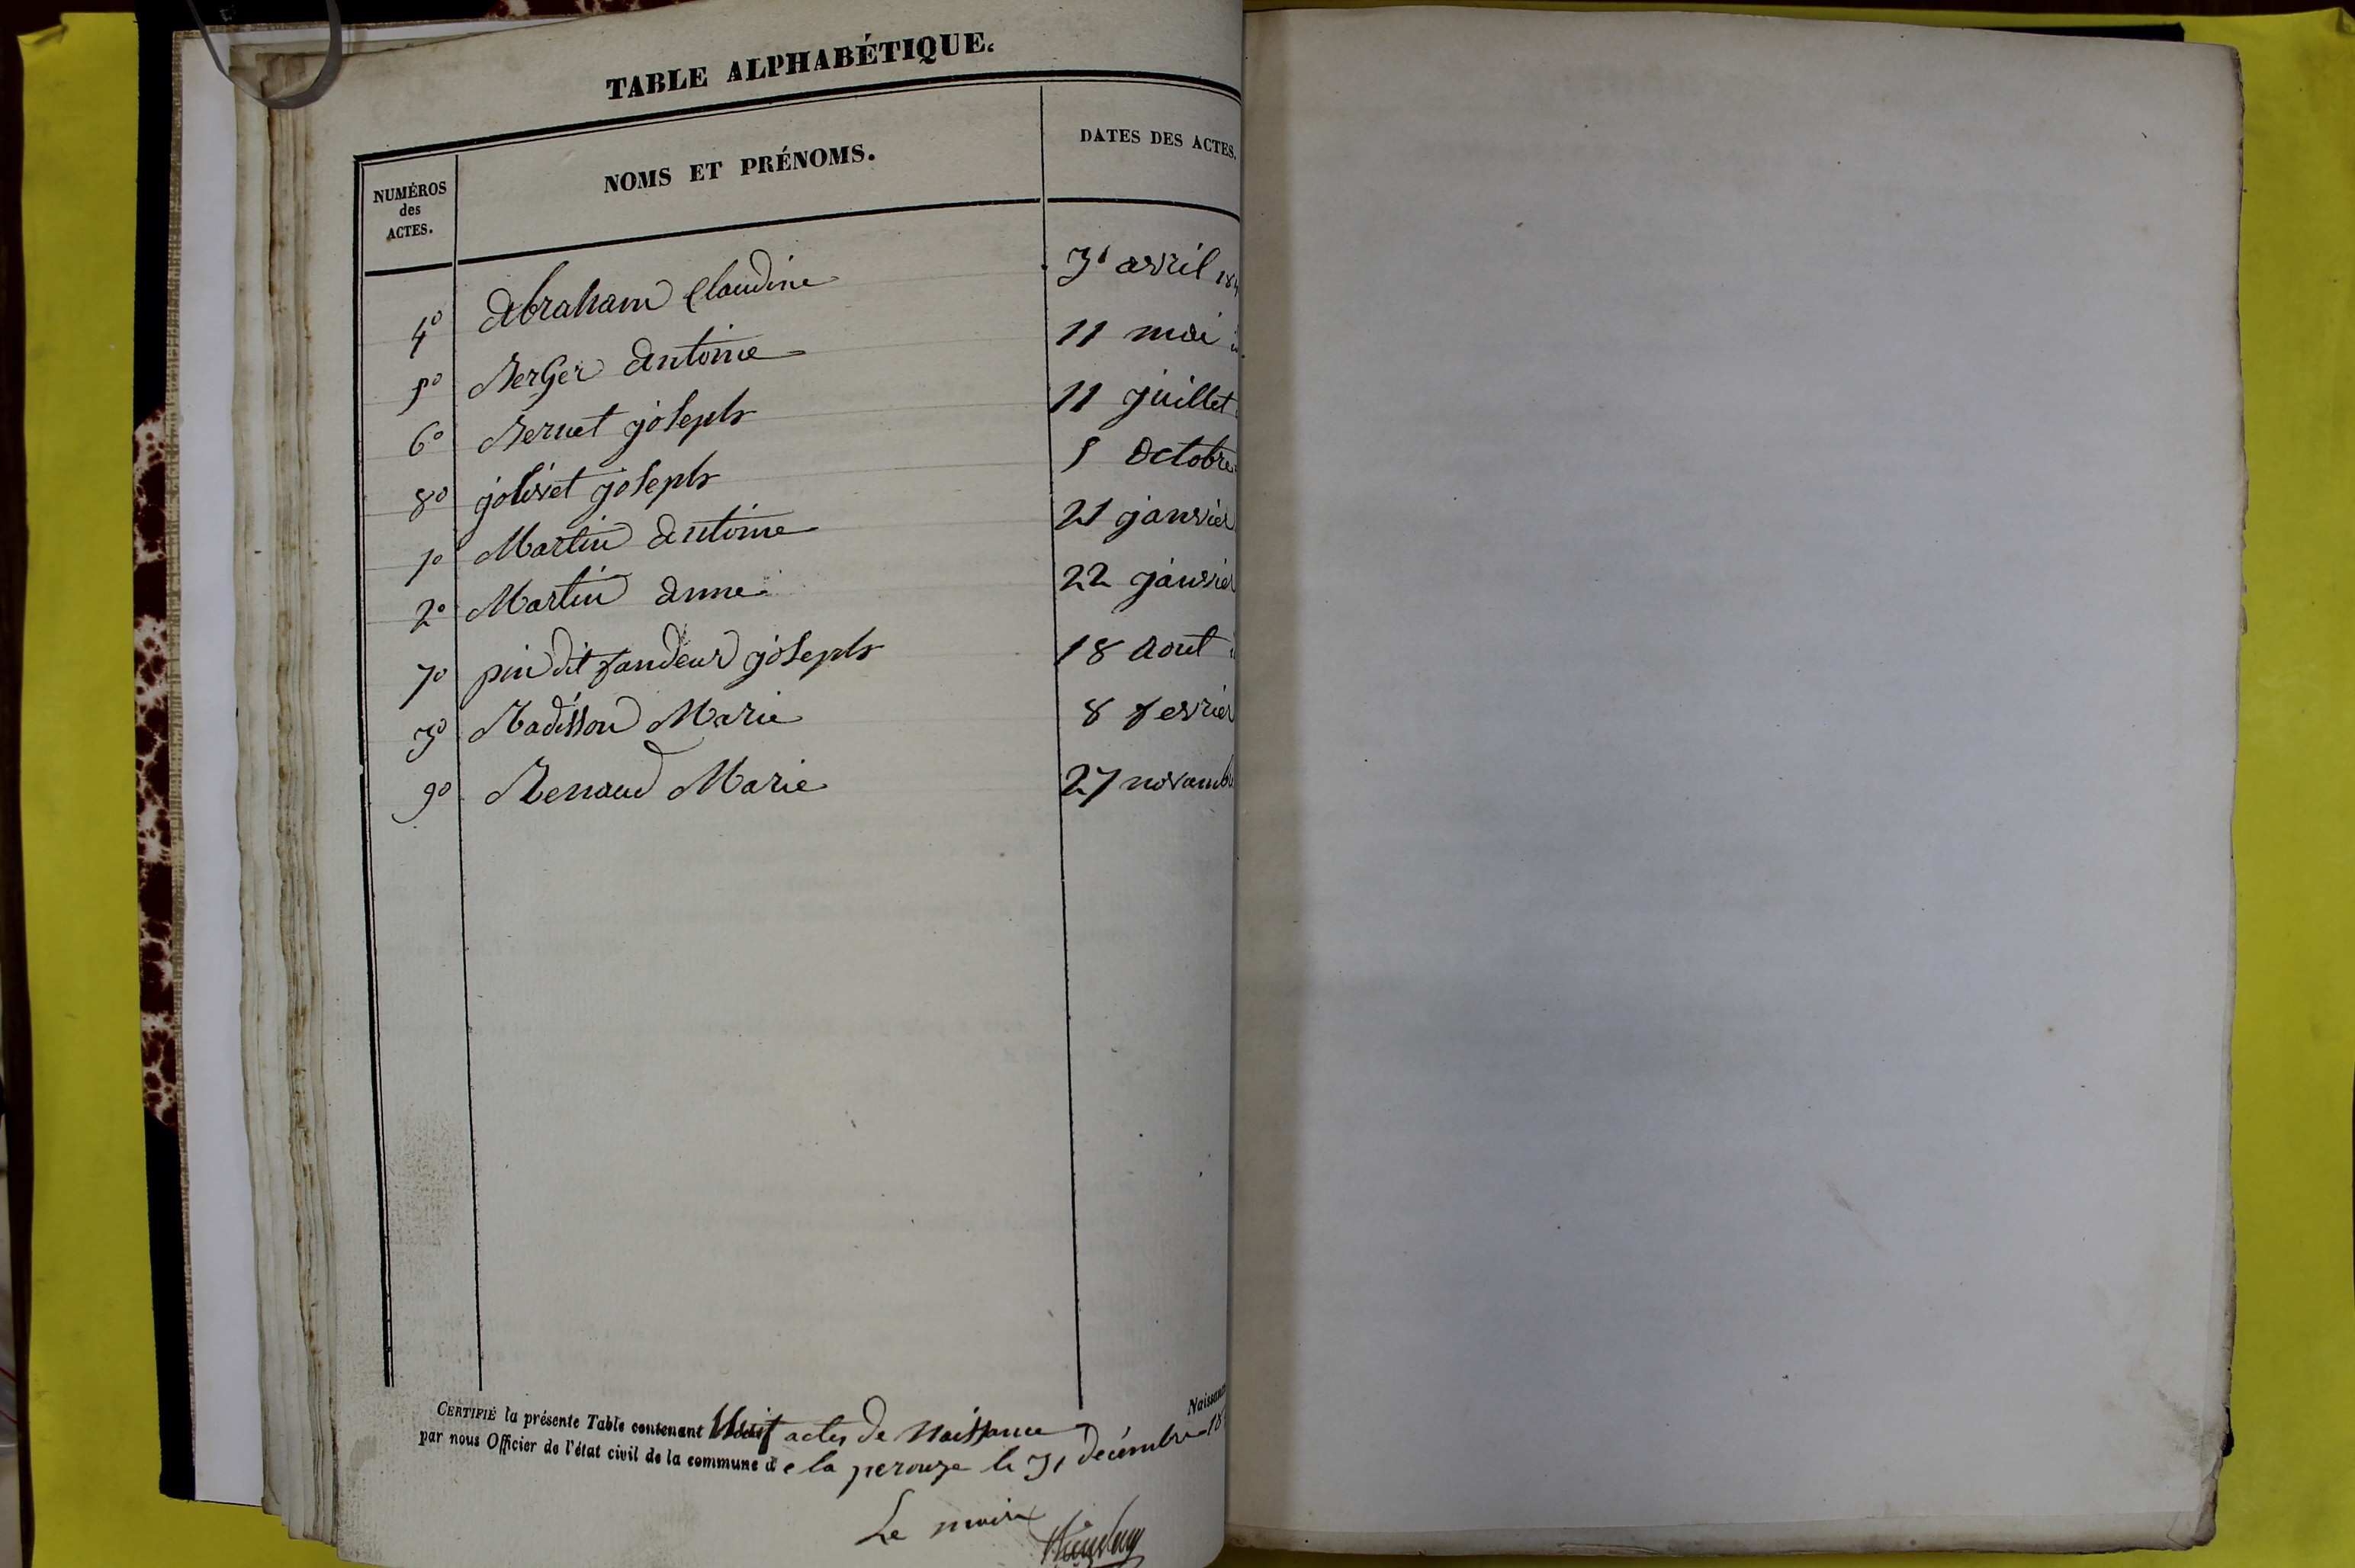 TABLE ALPHABÉTIQUE.
NUMÉROS des ACTES. NOMS ET PRÉNOMS. DATES DES ACTES.
4º Abraham Claudine 31 avril 184
5º Berger Antoine 11 mai
6º Bernet joseph 11 juillet
8º jolivet joseph 5 Octobre
1º Martin Antoine 21 janvier
2º Martin Anne 22 janvier
7º pin dit fandeur joseph 18 Aout
3º Radisson Marie 8 fevrier
9º Renaud Marie 27 novamb
Naissan
CERTIFIÉ la présente Table contenant actes de Naissance
par nous Officier de l'état civil de la commune de la perouze le 31 decembre 18
Le maire